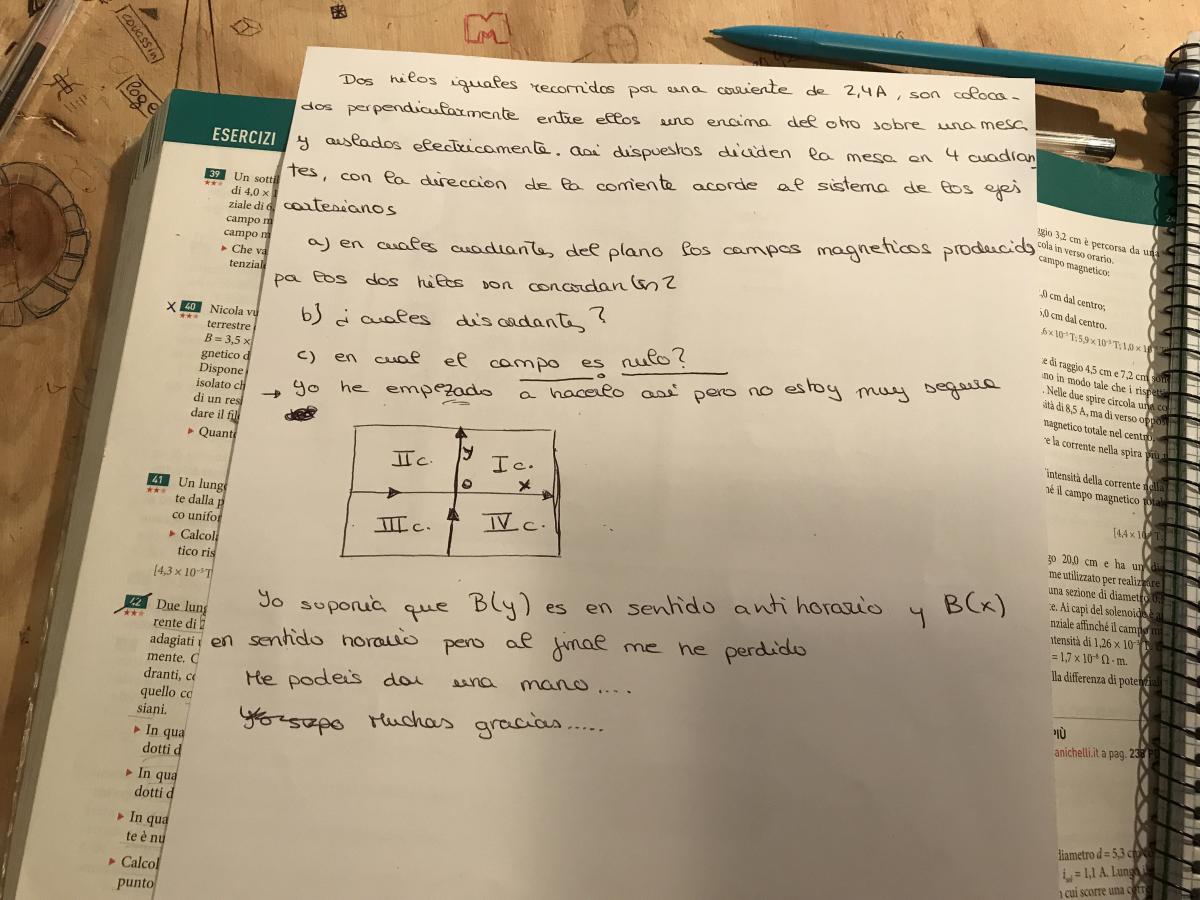 Dos hilos iguales recorridos por una corriente de 2,4A, son coloca-
dos perpendicularmente entre ellos uno encima del otro sobre una mesa
y aislados electricamente. asi dispuestos dividen la mesa en 4 cuadran
tes, con la direccion de la corriente acorde al sistema de los ejes
cartesianos
a) en cuales cuadrantes del plano los campos magneticos producidos
por los dos hilos son concordantes?
b) ¿cuales discordantes?
c) en cual el campo es nulo?
→ yo he empezado a hacerlo asi pero no estoy muy segura
II c.
y
I c.
O
x
III c.
IV c.
Yo suponià que B(y) es en sentido antihorario y B(x)
en sentido horario pero al final me he perdido
Me podeis dar una mano....
Muchas gracias.....
ESERCIZI
39
Un sottil
di 4,0 ×
ziale di 6
campo m
campo m
Che va
tenzial
x 40
Nicola vu
terrestre
B = 3,5 ×
gnetico d
Dispone
isolato ch
di un res
dare il fil
Quant
41
Un lung
te dalla p
co unifor
Calcol
tico ris
[4,3 × 10⁻⁵ T
42
Due lung
rente di 2
adagiati
mente. C
dranti, co
quello co
siani.
In qua
dotti d
In qua
dotti d
In qua
te è nu
Calcol
punto
ggio 3,2 cm è percorsa da
cola in verso orario.
campo magnetico:
,0 cm dal centro;
,0 cm dal centro.
e di raggio 4,5 cm e 7,2 cm
no in modo tale che i
. Nelle due spire circola una
ità di 8,5 A, ma di verso
magnetico totale nel centro.
re la corrente nella spira
'intensità della corrente
né il campo magnetico
[4,4 × 10
go 20,0 cm e ha un
me utilizzato per realizzare
una sezione di diametro
e. Ai capi del solenoide
nziale affinché il campo
ntensità di 1,26 × 10
= 1,7 × 10⁻⁸ Ω · m.
lla differenza di
PIÙ
anichelli.it a pag.
diametro d = 5,3
= 1,1 A.
cui scorre una
coussin
loge
M